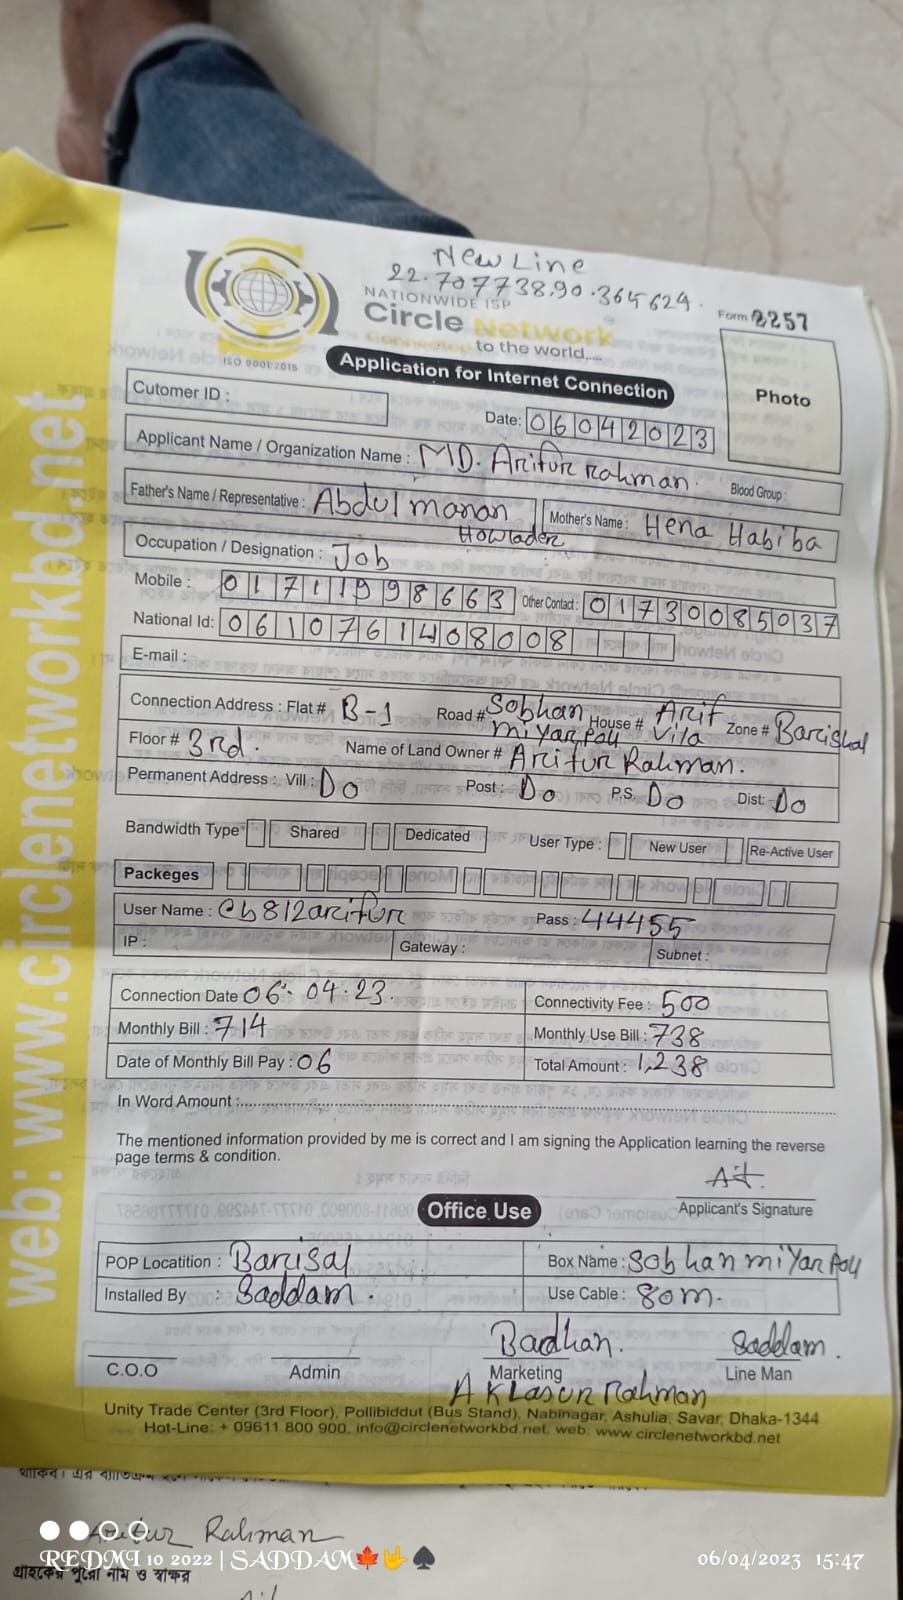 New Line
22.707738,90.364624.
NATIONWIDE ISP
Circle Network
Connected to the world.....
ISO 9001:2015
Form 2257
Application for Internet Connection
Photo
Cutomer ID :
Date: 06042023
Applicant Name / Organization Name : MD. Arifur Rahman.
Blood Group:
Father's Name / Representative : Abdul manan Howlader
Mother's Name : Hena Habiba
Occupation / Designation : Job
Mobile : 01711998663 Other Contact : 01730085037
National Id: 0610761408008
E-mail :
Connection Address : Flat # B-1 Road # Sobhan miyar Poll House # Arif Vila Zone # Barishal
Floor # 3rd. Name of Land Owner # Arifur Rahman.
Permanent Address : Vill : Do Post : Do P.S. Do Dist: Do
Bandwidth Type Shared Dedicated User Type : New User Re-Active User
Packeges
User Name : cb812arifur Pass : 44455
IP : Gateway : Subnet :
Connection Date 06.04.23. Connectivity Fee : 500
Monthly Bill : 714 Monthly Use Bill : 738
Date of Monthly Bill Pay : 06 Total Amount : 1,238
In Word Amount :
The mentioned information provided by me is correct and I am signing the Application learning the reverse
page terms & condition.
Applicant's Signature
Office Use
POP Locatition : Barisal Box Name : Sobhan miyar Poll
Installed By : Saddam. Use Cable : 80m.
Bardhan. Saddam.
C.O.O Admin Marketing Line Man
AKLasur Rahman
Unity Trade Center (3rd Floor), Pollibiddut (Bus Stand), Nabinagar, Ashulia, Savar, Dhaka-1344
Hot-Line: + 09611 800 900, info@circlenetworkbd.net, web: www.circlenetworkbd.net
web: www.circlenetworkbd.net
Arifur Rahman
গ্রাহকের পুরো নাম ও স্বাক্ষর
REDMI 10 2022 | SADDAM🍁🤟♠
06/04/2023 15:47